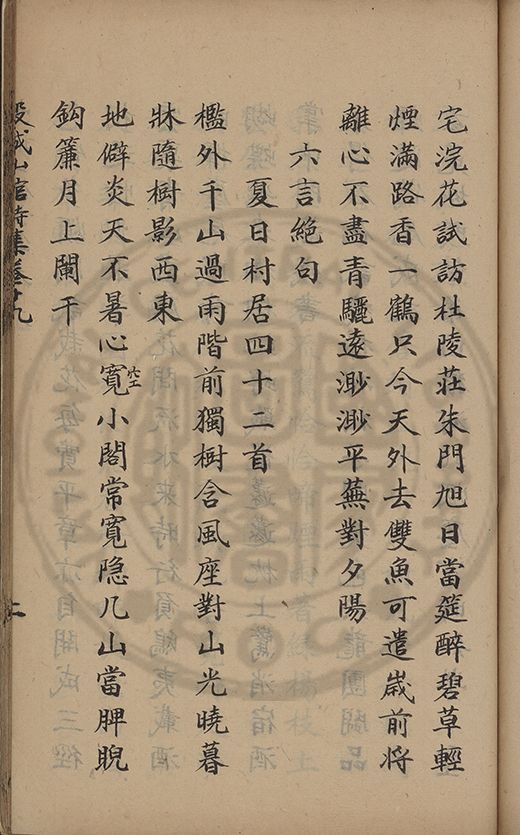 宅浣花試訪杜陵莊朱門旭日當筵醉碧草輕
煙滿路香一鶴只今天外去雙魚可遣嵗前將
離心不盡青驪遠渺渺平蕪對夕陽
六言絶句
夏日村居四十二首
檻外千山過雨階前獨樹含風座對山光曉暮
牀隨樹影西東
地僻炎天不暑心寛空小閣常寛隐几山當脾睨
鈎簾月上闌干
穀城山館詩集卷十九
上